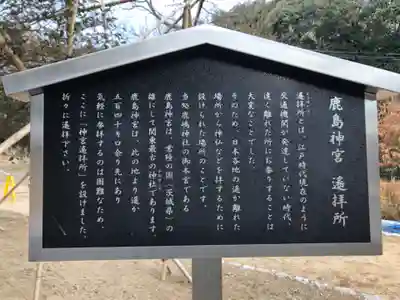 鹿島神宮 遥拝所
遥拝所とは、江戸時代現在のように
交通機関が発達していない時代、
遠く離れた所にお参りすることは
大変なことでした。
そのため、日本各地の遥か離れた
場所から神仏などを拝するために
設けられた場所のことです。
当処鹿嶋神社の御本宮である
鹿島神宮は、常陸の国（茨城県）の
雄にして関東最古の神社であります。
鹿島神宮は、此の地より遥か
五百四十キロ余り先にあり
気軽に参拝するのは困難なため、
ここに「神宮遥拝所」を設けました。
折々に遥拝下さい。